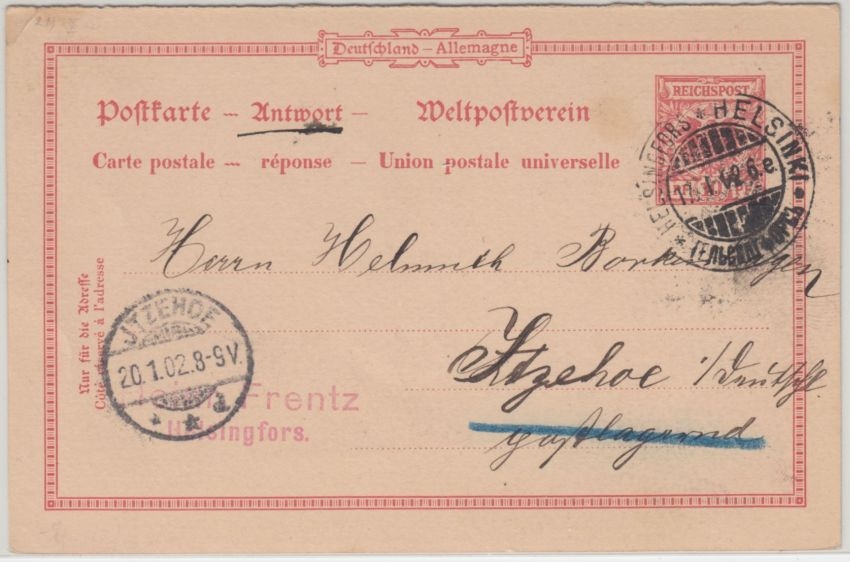 Deutschland – Allemagne
Postkarte – Antwort – Weltpostverein
Carte postale – réponse – Union postale universelle
REICHSPOST
HELSINGFORS * HELSINKI * ГЕЛЬСИНГФОРСЪ *
17.1.02.6.e
Herrn Helmuth
Itzehoe /Deutschl.
postlagernd
Nur für die Adresse
Côté réservé à l'adresse
ITZEHOE
20.1.02.8-9V.
* * d
Frentz
Helsingfors.